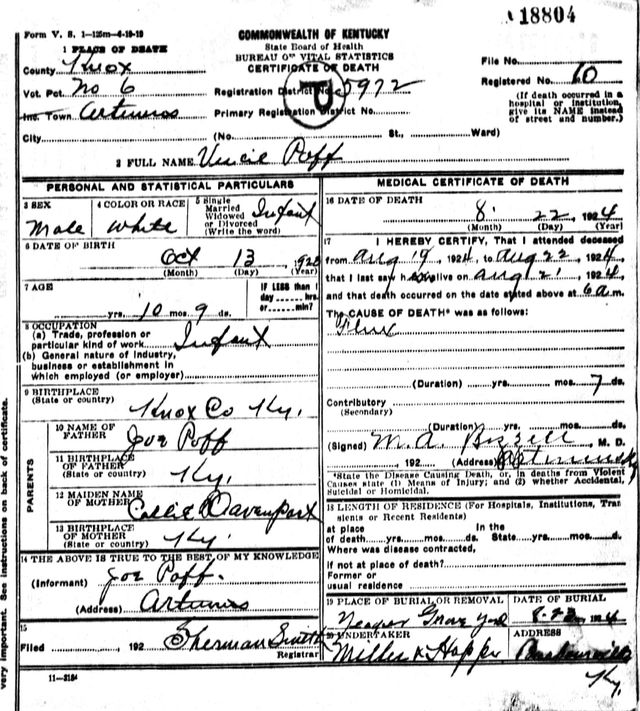 18804
Form V. S. 1-125m-4-19-19
COMMONWEALTH OF KENTUCKY
State Board of Health
BUREAU OF VITAL STATISTICS
CERTIFICATE OF DEATH
1 PLACE OF DEATH
County Knox
File No.
Vot. Pct. No 6
Registration District No. 5972
Registered No. 60
Inc. Town Artemus
Primary Registration District No.
(If death occurred in a hospital or institution, give its NAME instead of street and number.)
City (No. St., Ward)
2 FULL NAME Poff
PERSONAL AND STATISTICAL PARTICULARS
3 SEX
Male
4 COLOR OR RACE
White
5 Single
Married
Widowed
or Divorced
(Write the word)
Infant
6 DATE OF BIRTH
Oct 13 192
(Month) (Day) (Year)
7 AGE
IF LESS than 1
day hrs.
or min?
yrs. 10 mos. 9 ds.
8 OCCUPATION
(a) Trade, profession or
particular kind of work Infant
(b) General nature of industry,
business or establishment in
which employed (or employer)
9 BIRTHPLACE
(State or country)
Knox Co Ky.
PARENTS
10 NAME OF
FATHER
Joe Poff
11 BIRTHPLACE
OF FATHER
(State or country)
Ky.
12 MAIDEN NAME
OF MOTHER
Davenport
13 BIRTHPLACE
OF MOTHER
(State or country)
Ky.
14 THE ABOVE IS TRUE TO THE BEST OF MY KNOWLEDGE
(Informant) Joe Poff.
(Address) Artemus
15
Filed 192 Sherman Smith
Registrar
11-3184
MEDICAL CERTIFICATE OF DEATH
16 DATE OF DEATH
8 22 1924
(Month) (Day) (Year)
17 I HEREBY CERTIFY, That I attended deceased
from Aug 19, 1924, to Aug 22, 1924
that I last saw h alive on Aug 21, 1924
and that death occurred on the date stated above at 6 a m.
The CAUSE OF DEATH* was as follows:
Flux
(Duration) yrs. mos. 7 ds.
Contributory
(Secondary)
(Duration) yrs. mos. ds.
(Signed) M. A. M. D.
, 192 (Address)
*State the Disease Causing Death, or, in deaths from Violent
Causes state (1) Means of Injury; and (2) whether Accidental,
Suicidal or Homicidal.
18 LENGTH OF RESIDENCE (For Hospitals, Institutions, Tran
sients or Recent Residents)
at place In the
of death yrs. mos. ds. State yrs. mos. ds.
Where was disease contracted,
if not at place of death?
Former or
usual residence
19 PLACE OF BURIAL OR REMOVAL
Grave Yard
DATE OF BURIAL
8-23 1924
20 UNDERTAKER
Miller & Hopper
ADDRESS
Barbourville
Ky.
very important. See instructions on back of certificate.